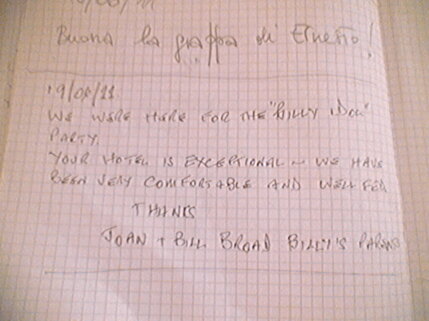 Buona la grappa di Ernesto!
19/08/11
WE WERE HERE FOR THE "BILLY IDOL"
PARTY.
YOUR HOTEL IS EXCEPTIONAL - WE HAVE
BEEN VERY COMFORTABLE AND WELL FED
THANKS
JOAN + BILL BROAD BILLY'S PARENTS